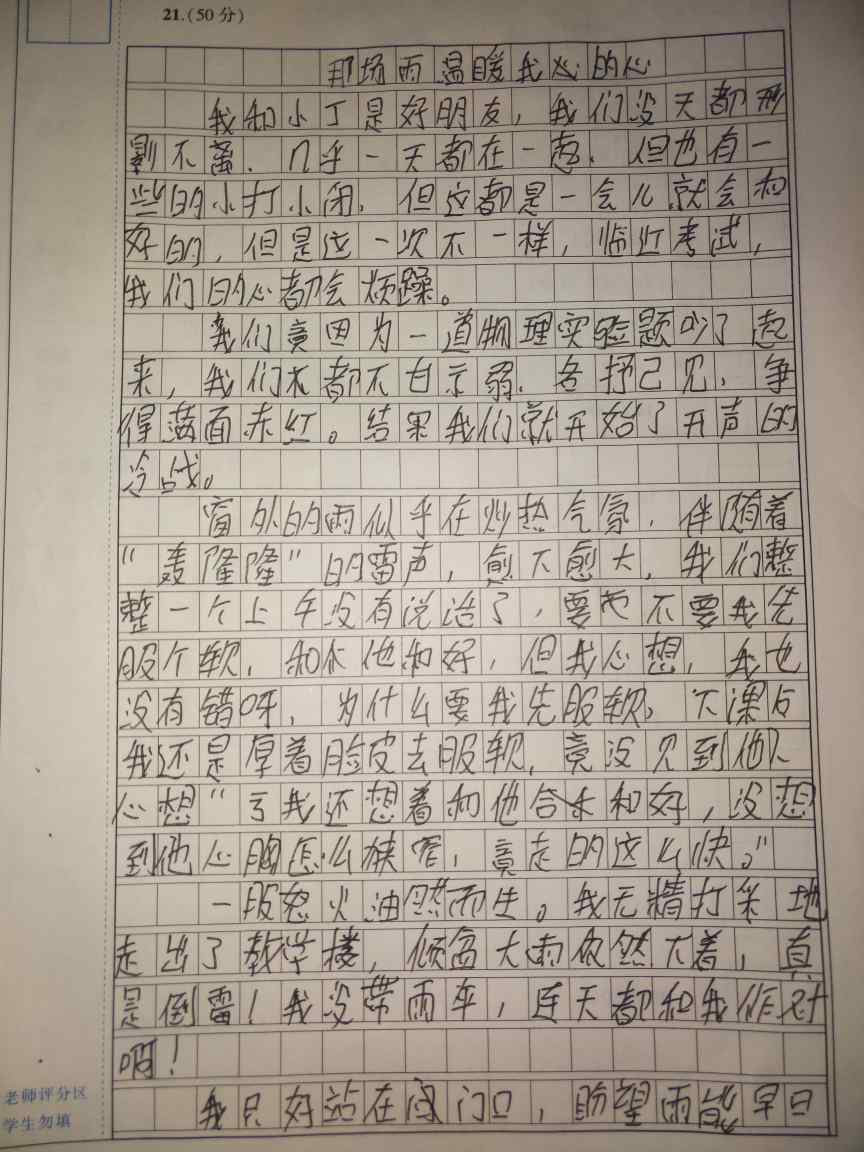 21.(50分)
那场雨温暖我的心
我和小丁是好朋友，我们没天都形
影不离.几乎一天都在一起.但也有一
些的小打小闭，但这都是一会儿就会和
好的，但是这一次不一样，临近考试，
我们的心都会烦躁。
我们竟因为一道物理实验题吵了起
来，我们都不甘示弱.各抒己见，争
得满面赤红。结果我们就开始了开声的
冷战。
窗外的雨似乎在炒热气氛，伴随着
“轰隆隆”的雷声，愈下愈大，我们整
整一个上午没有说话了，要不要我先
服个软，和他和好，但我心想，我也
没有错呀，为什么要我先服软，下课后
我还是厚着脸皮去服软，竟没见到他人
心想“亏我还想着和他合和好，没想
到他心胸怎么狭窄，竟走的这么快。”
一股怒火油然而生。我无精打采地
走出了教学楼，倾盆大雨依然下着，真
是倒雷！我没带雨伞，连天都和我作对
啊！
我只好站在门口，盼望雨能早日
老师评分区
学生勿填